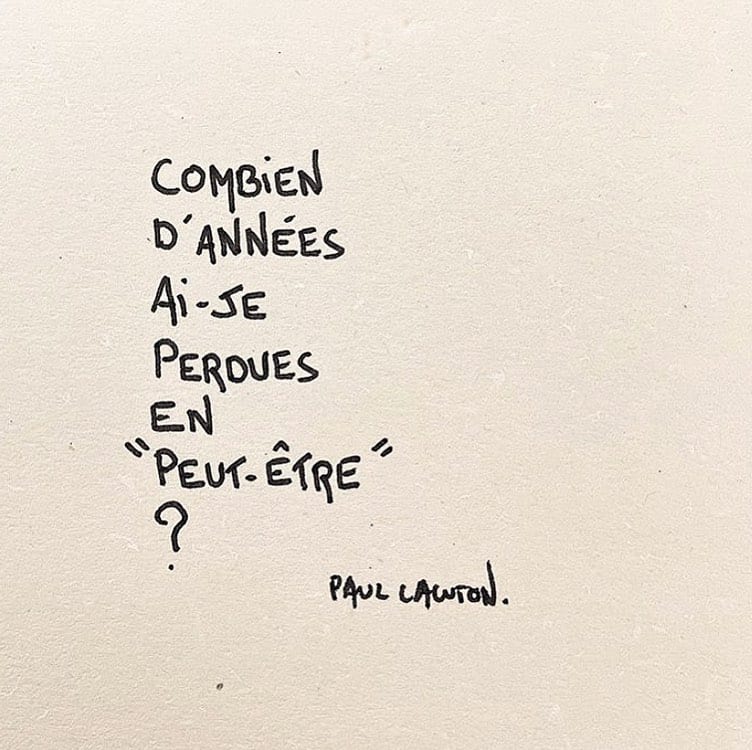 COMBIEN
D'ANNÉES
AI-JE
PERDUES
EN
"PEUT-ÊTRE"
?
PAUL LAWTON.